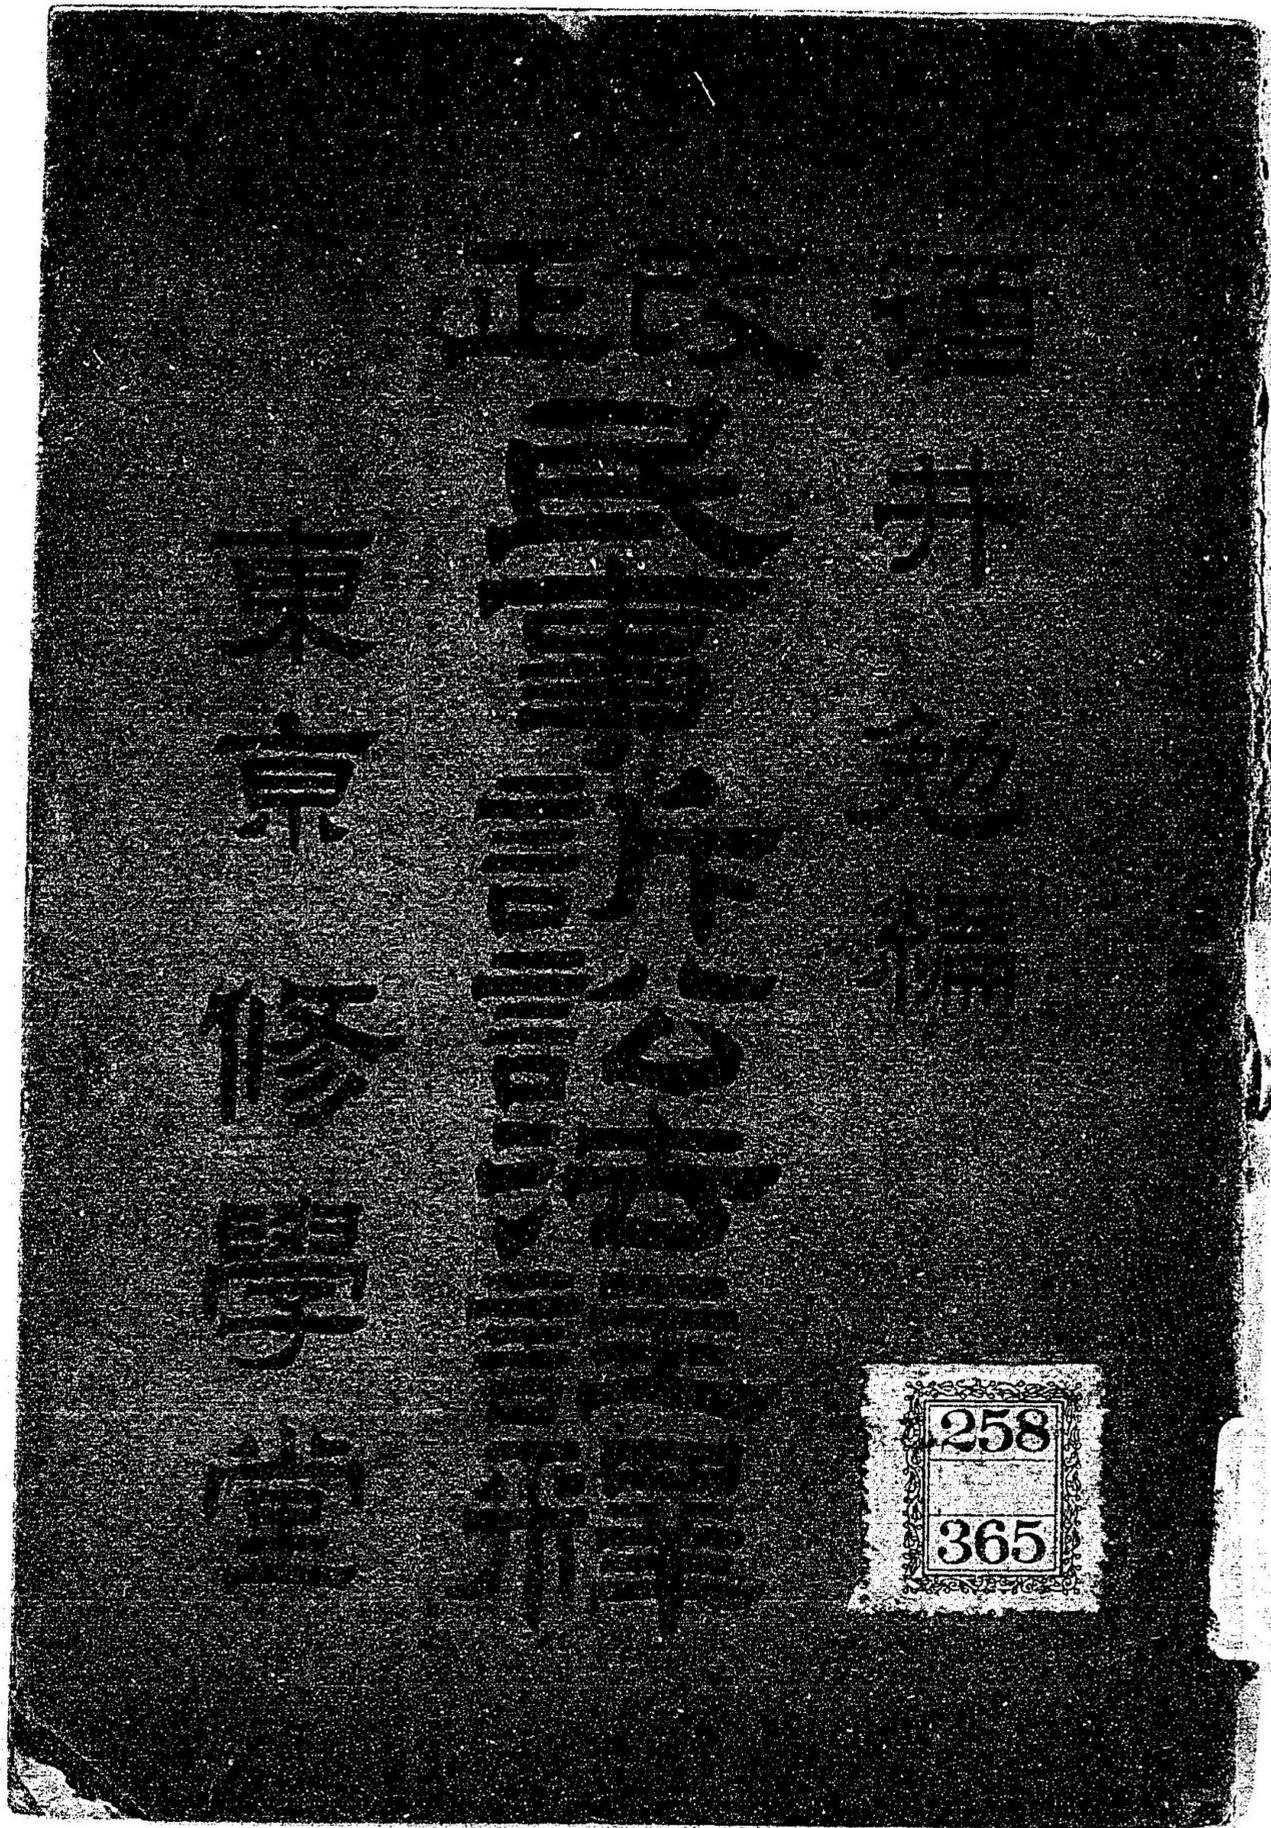 酒井勉編
改正
民事訴訟法釋
東京 修學堂
258
365